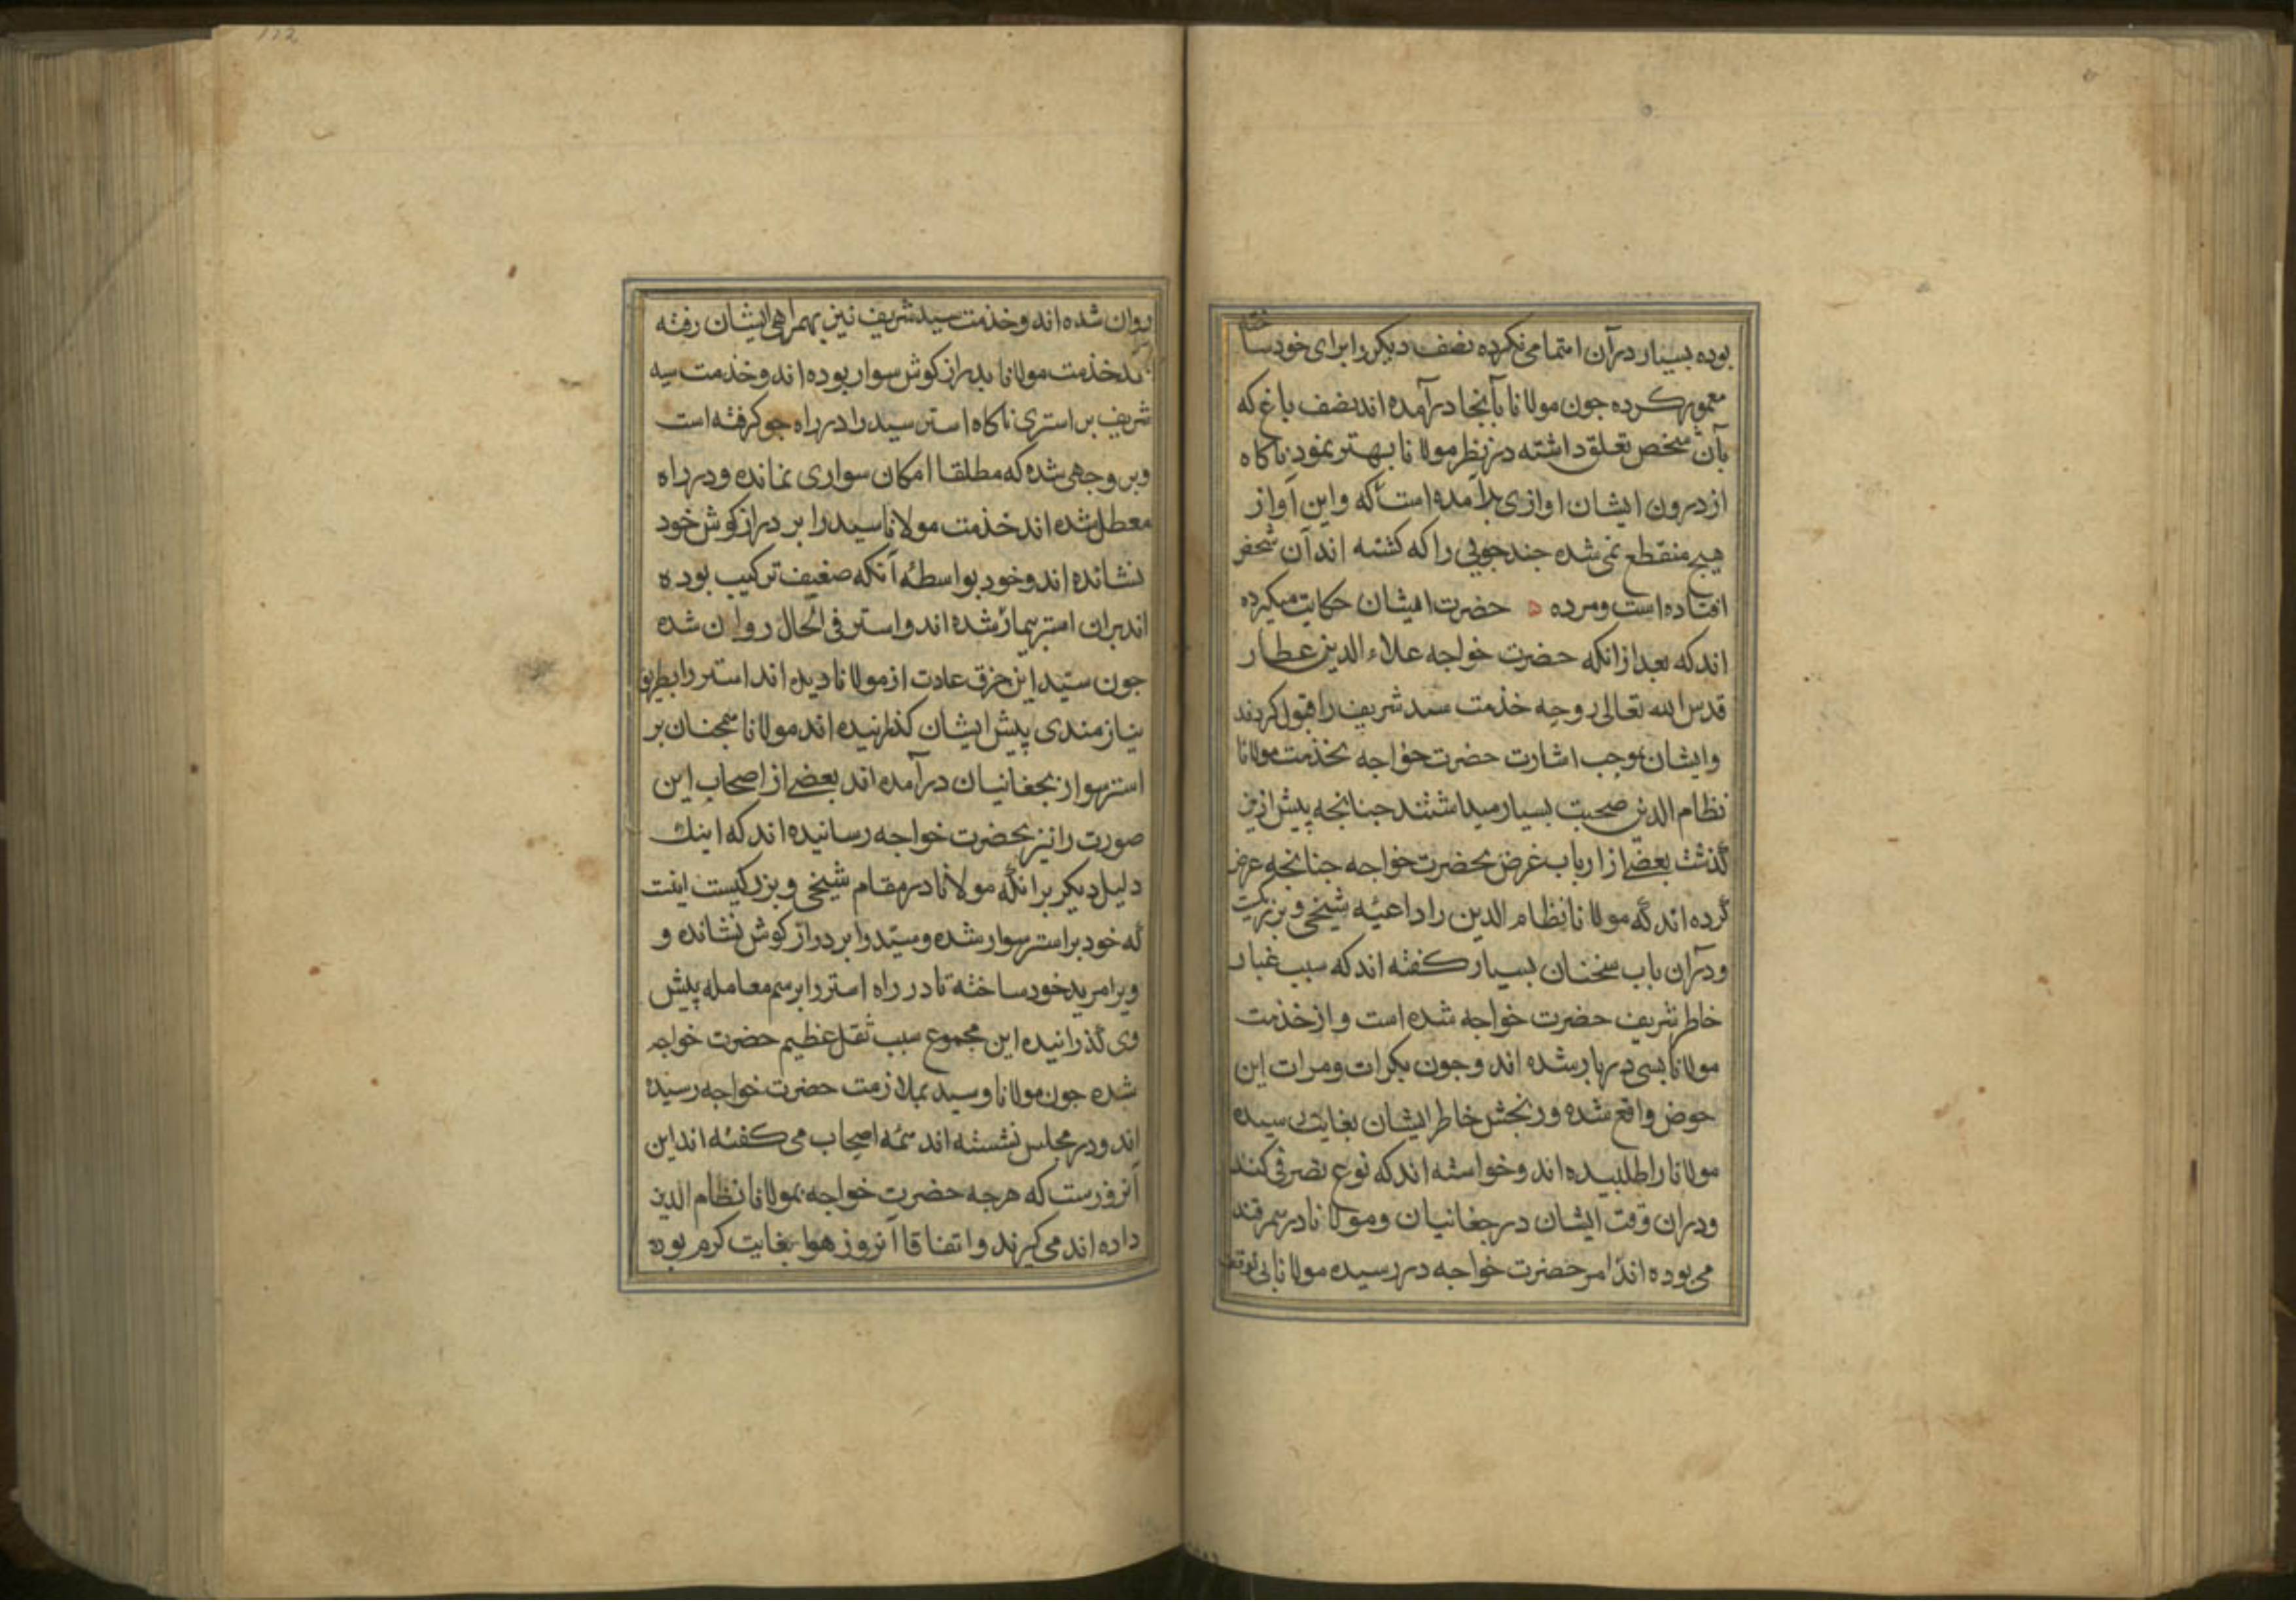 بوده بسیار در آن اهتمامی نکرده نصف دیکر را برای خود ساخته
معمور کرده جون مولانا بآنجا درآمده اند نصف باغ که
بآن شخص تعلق داشته در نظر مولانا بهتر نمود ناکاه
از درون ایشان اوازی برآمده است که واین آواز
هیج منقطع نمی شده جند جوبی را که کشته اند آن شخص
افتاده است ومرده ه حضرت ایشان حکایت میکرده
اند که بعد از انکه حضرت خواجه علاء الدین عطار
قدس الله تعالی روحه خذمت سید شریف را قبول کردند
وایشان بموجب اشارت حضرت خواجه بخذمت مولانا
نظام الدین صحبت بسیار میداشتند جنانجه پیش ازین
گذشت بعضی از ارباب غرض بحضرت خواجه جنانجه عرض
کرده اند که مولانا نظام الدین را داعیه شیخی وبزرکیست
ودر آن باب سخنان بسیار کفته اند که سبب غبار
خاطر شریف حضرت خواجه شده است واز خذمت
مولانا بسی در بار شده اند وجون بکرات ومرات این
حوض واقع شده ورنجش خاطر ایشان بغایت رسیده
مولانا را طلبیده اند وخواسته اند که نوع تصرفی کنند
ودران وقت ایشان در جغانیان ومولانا در سمرقند
می بوده اند امر حضرت خواجه در رسیده مولانا بی توقف
112
روان شده اند وخذمت سید شریف نیز بهمراهی ایشان رفته
اند خذمت مولانا بدراز کوش سوار بوده اند وخذمت سید
شریف بر استری ناکاه استر سید را در راه جو کرفته است
وبر وجهی شده که مطلقا امکان سواری نمانده ودر راه
معطل شده اند خذمت مولانا سید را بر دراز کوش خود
نشانده اند وخود بواسطه آنکه ضعیف ترکیب بوده
اند بران استر بیمار شده اند واستر فی الحال روان شده
جون سید این خرق عادت از مولانا دیده اند استر را بطریق
نیازمندی پیش ایشان کذرانیده اند مولانا همجنان بر
استر سوار بجغانیان درآمده اند بعضی از اصحاب این
صورت را نیز بحضرت خواجه رسانیده اند که اینک
دلیل دیکر بر انکه مولانا در مقام شیخی وبزرکیست اینت
که خود بر استر سوار شده وسید را بر دراز کوش نشانده و
ویرا مرید خود ساخته تا در راه استر را برسم معامله پیش
وی گذرانیده این مجموع سبب ثقل عظیم حضرت خواجه
شده جون مولانا وسید بملازمت حضرت خواجه رسیده
اند ودر مجلس نشسته اند همه اصحاب می کفته اند این
آنروزست که هرجه حضرت خواجه بمولانا نظام الدین
داده اند می کیرند واتفاقا آنروز هوا بغایت کرم بوده